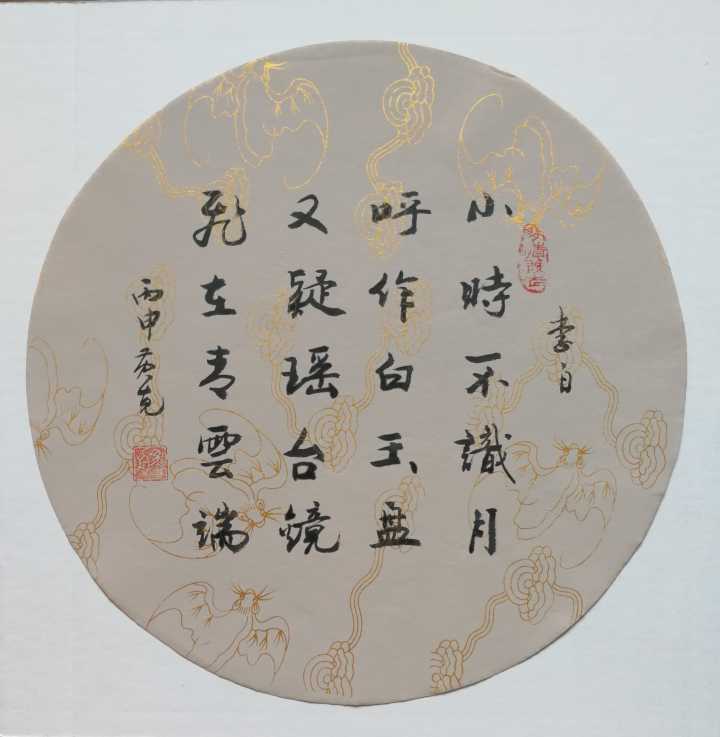 李白
小時不識月
呼作白玉盘
又疑瑶台鏡
飛在青雲端
丙申